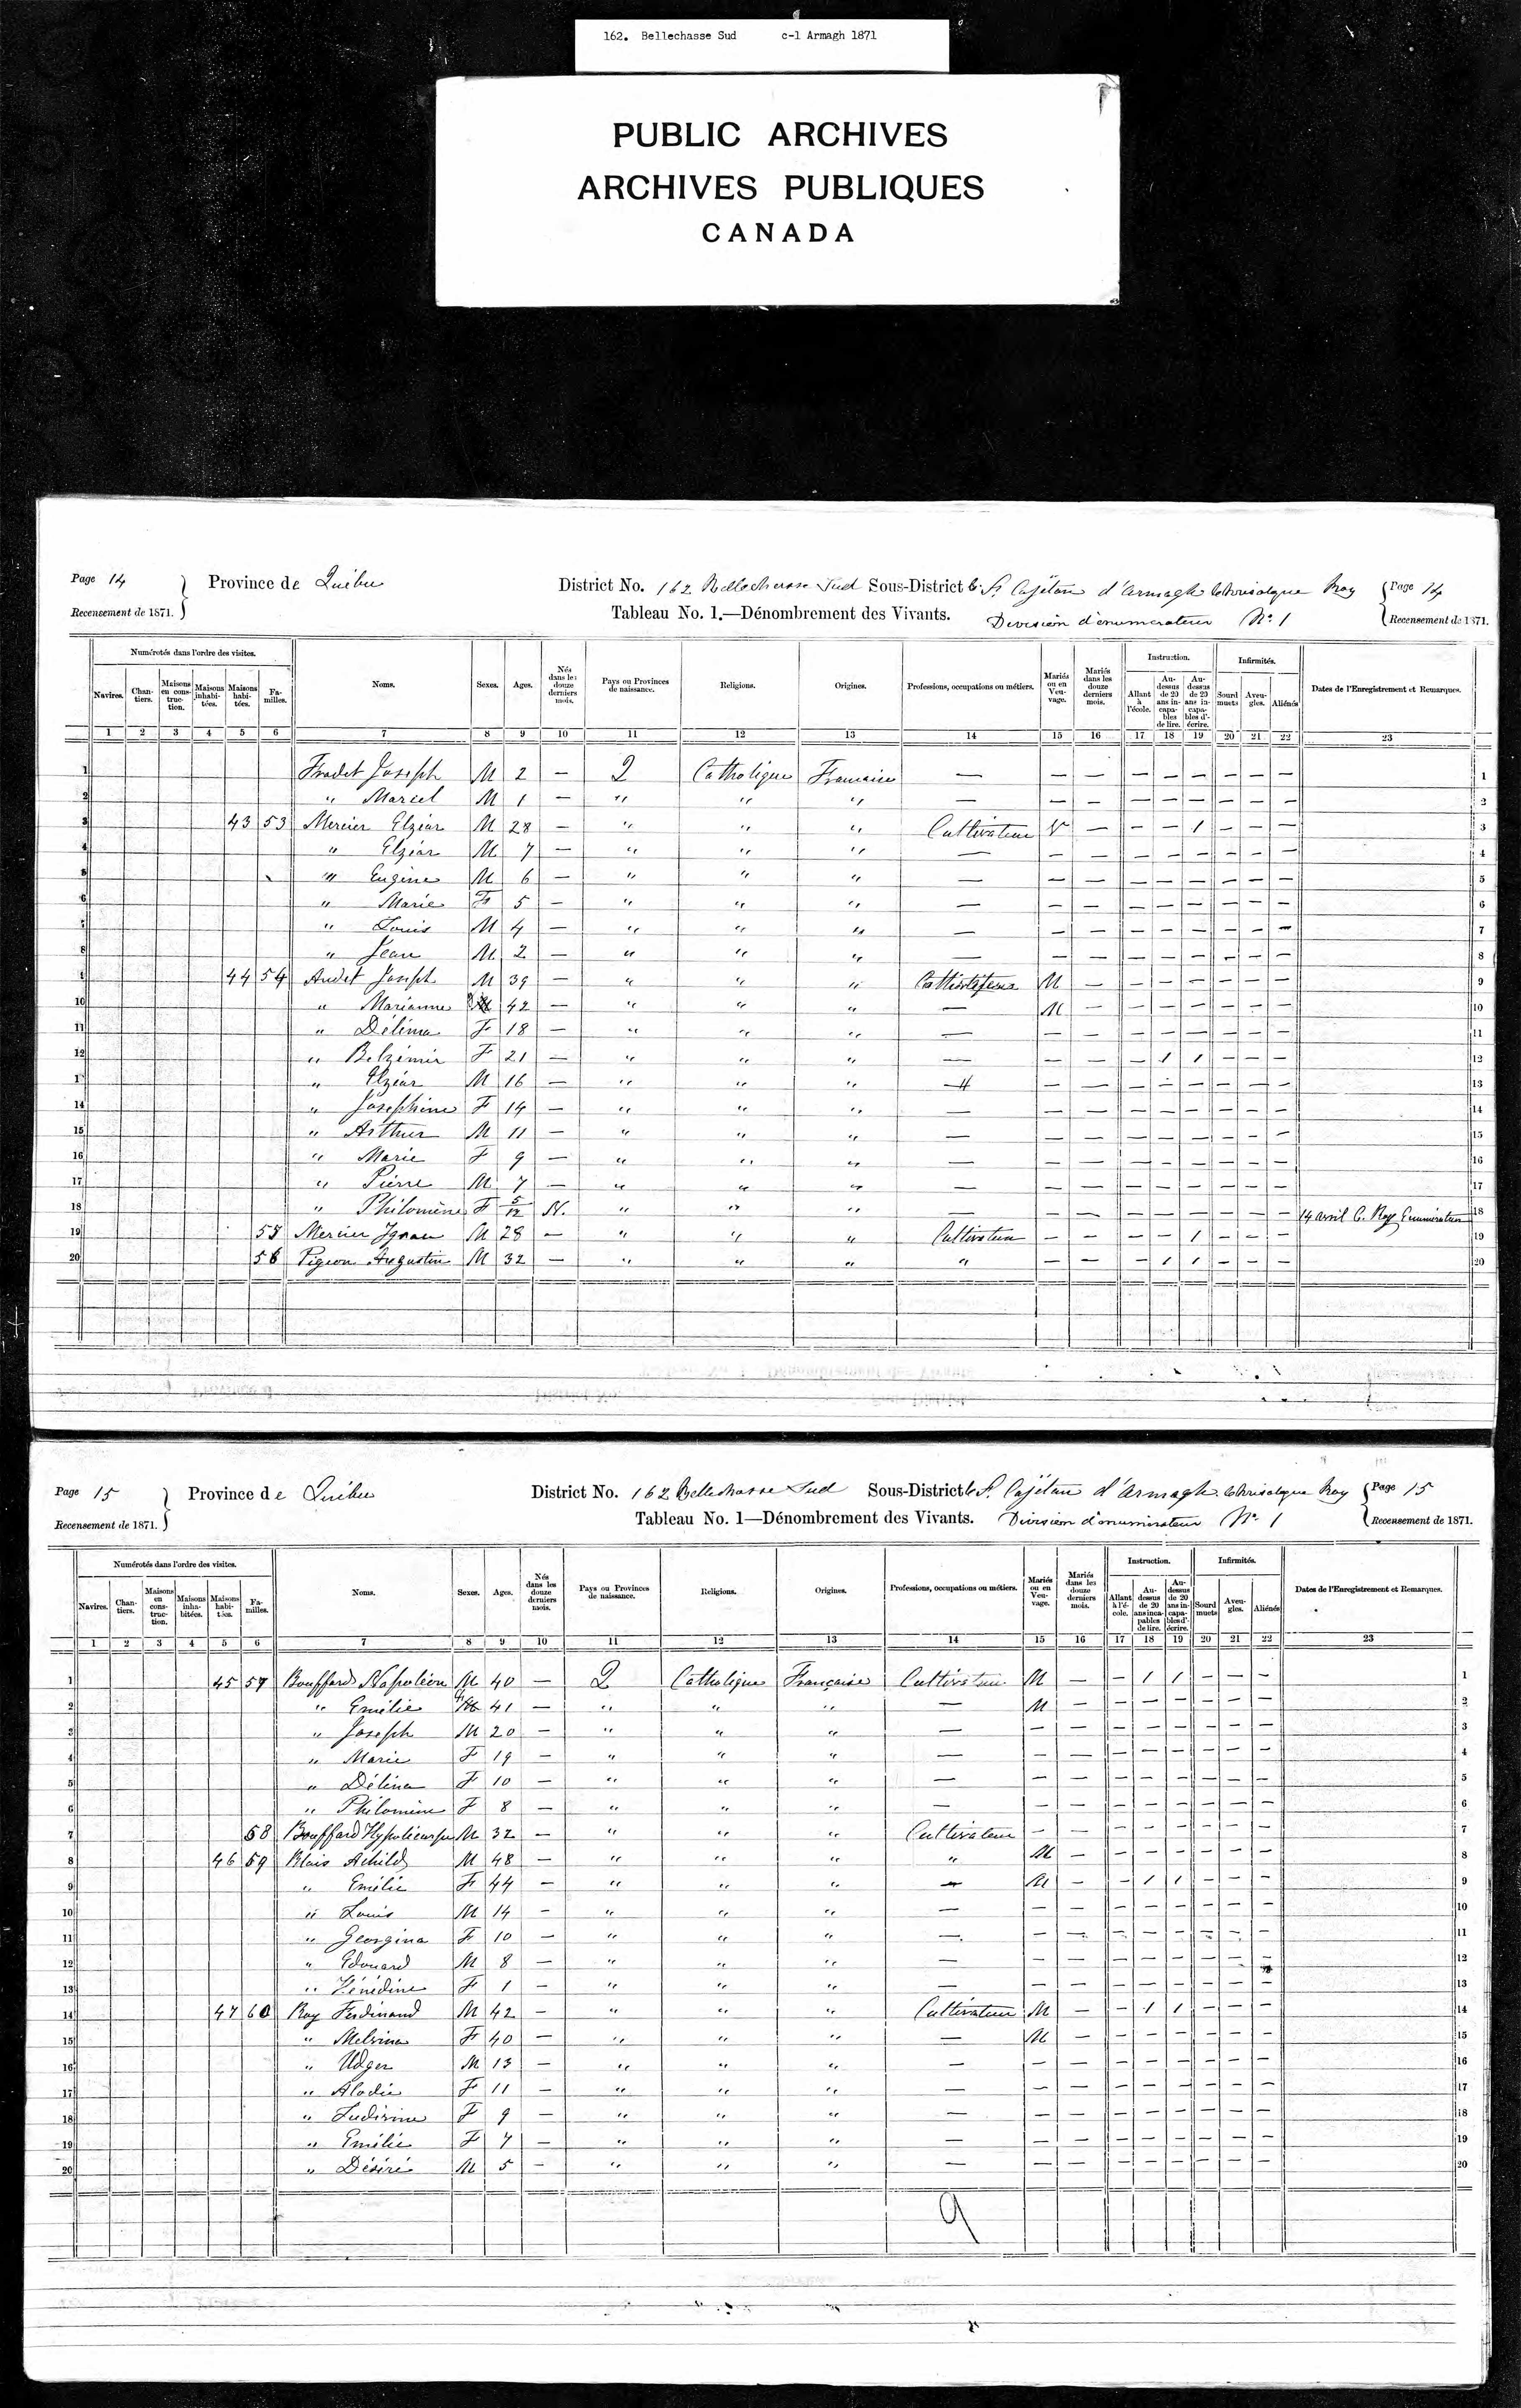 162. Bellechasse Sud c-1 Armagh 1871
PUBLIC ARCHIVES
ARCHIVES PUBLIQUES
CANADA
Page 14 Province de Québec District No. 162 Bellechasse Sud Sous-District St Cajétan d'Armagh Roy Page 14
Recensement de 1871. Tableau No. 1.—Dénombrement des Vivants. Division d'énumérateur No. 1 Recensement de 1871.
Numérotés dans l'ordre des visites. Instruction. Infirmités.
Navires. Chantiers. Maisons en construction. Maisons inhabitées. Maisons habitées. Familles. Noms. Sexes. Ages. Nés dans les douze derniers mois. Pays ou Provinces de naissance. Religions. Origines. Professions, occupations ou métiers. Mariés ou en Veuvage. Mariés dans les douze derniers mois. Allant à l'école. Au-dessus de 20 ans incapables de lire. Au-dessus de 20 ans incapables d'écrire. Sourd muets Aveugles. Aliénés Dates de l'Enregistrement et Remarques.
1 2 3 4 5 6 7 8 9 10 11 12 13 14 15 16 17 18 19 20 21 22 23
1 Fradet Joseph M 2 — Q Catholique Francaise — — — — — — — — — 1
2 " Marcel M 1 — " " " — — — — — — — — — 2
3 43 53 Mercier Elzéar M 28 — " " " Cultivateur V — — — 1 — — — 3
4 " Elzéar M 7 — " " " — — — — — — — — — 4
5 " Eugène M 6 — " " " — — — — — — — — — 5
6 " Marie F 5 — " " " — — — — — — — — — 6
7 " Louis M 4 — " " " — — — — — — — — — 7
8 " Jean M 2 — " " " — — — — — — — — — 8
9 44 54 Audet Joseph M 39 — " " " Cultivateur M — — — — — — — 9
10 " Marianne 42 — " " " — M — — — — — — — 10
11 " Délima F 18 — " " " — — — — — — — — — 11
12 " Belzémir F 21 — " " " — — — — 1 1 — — — 12
13 " Elzéar M 16 — " " " — — — — — — — — 13
14 " Josephine F 14 — " " " — — — — — — — — — 14
15 " Arthur M 11 — " " " — — — — — — — — — 15
16 " Marie F 9 — " " " — — — — — — — — — 16
17 " Pierre M 7 — " " " — — — — — — — — — 17
18 " Philomène F 5/12 N. " " " — — — — — — — — — 14 avril C. Roy Enumérateur 18
19 55 Mercier Ignace M 28 — " " " Cultivateur — — — — 1 — — — 19
20 56 Pigeon Augustin M 32 — " " " " — — — 1 1 — — — 20
Page 15 Province de Québec District No. 162 Bellechasse Sud Sous-District St Cajétan d'Armagh Roy Page 15
Recensement de 1871. Tableau No. 1—Dénombrement des Vivants. Division d'énumérateur No. 1 Recensement de 1871.
Numérotés dans l'ordre des visites. Instruction. Infirmités.
Navires. Chantiers. Maisons en construction. Maisons inhabitées. Maisons habitées. Familles. Noms. Sexes. Ages. Nés dans les douze derniers mois. Pays ou Provinces de naissance. Religions. Origines. Professions, occupations ou métiers. Mariés ou en Veuvage. Mariés dans les douze derniers mois. Allant à l'école. Au-dessus de 20 ans incapables de lire. Au-dessus de 20 ans incapables d'écrire. Sourd muets Aveugles. Aliénés Dates de l'Enregistrement et Remarques.
1 2 3 4 5 6 7 8 9 10 11 12 13 14 15 16 17 18 19 20 21 22 23
1 45 57 Bouffard Napoléon M 40 — Q Catholique Française Cultivateur M — — 1 1 — — — 1
2 " Emélie 41 — " " " — M — — — — — — — 2
3 " Joseph M 20 — " " " — — — — — — — — — 3
4 " Marie F 19 — " " " — — — — — — — — — 4
5 " Délina F 10 — " " " — — — — — — — — — 5
6 " Philomène F 8 — " " " — — — — — — — — — 6
7 58 Bouffard M 32 — " " " Cultivateur — — — — — — — — 7
8 46 59 Blais Achild M 48 — " " " " M — — — — — — — 8
9 " Emélie F 44 — " " " — M — — 1 1 — — — 9
10 " Louis M 14 — " " " — — — — — — — — — 10
11 " Georgina F 10 — " " " — — — — — — — — — 11
12 " Edouard M 8 — " " " — — — — — — — — — 12
13 " Zénédine F 1 — " " " — — — — — — — — — 13
14 47 60 Roy Ferdinand M 42 — " " " Cultivateur M — — 1 1 — — — 14
15 " Melvina F 40 — " " " — M — — — — — — — 15
16 " Udger M 13 — " " " — — — — — — — — — 16
17 " Alodie F 11 — " " " — — — — — — — — — 17
18 " F 9 — " " " — — — — — — — — — 18
19 " Emélie F 7 — " " " — — — — — — — — — 19
20 " Désiré M 5 — " " " — — — — — — — — — 20
9